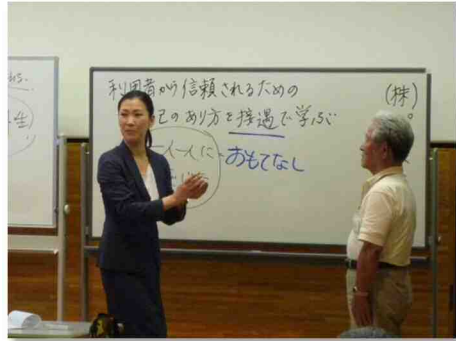 利用者から信頼されるための
己のあり方を接遇で学ぶ
一人一人に
おもてなし
(株)